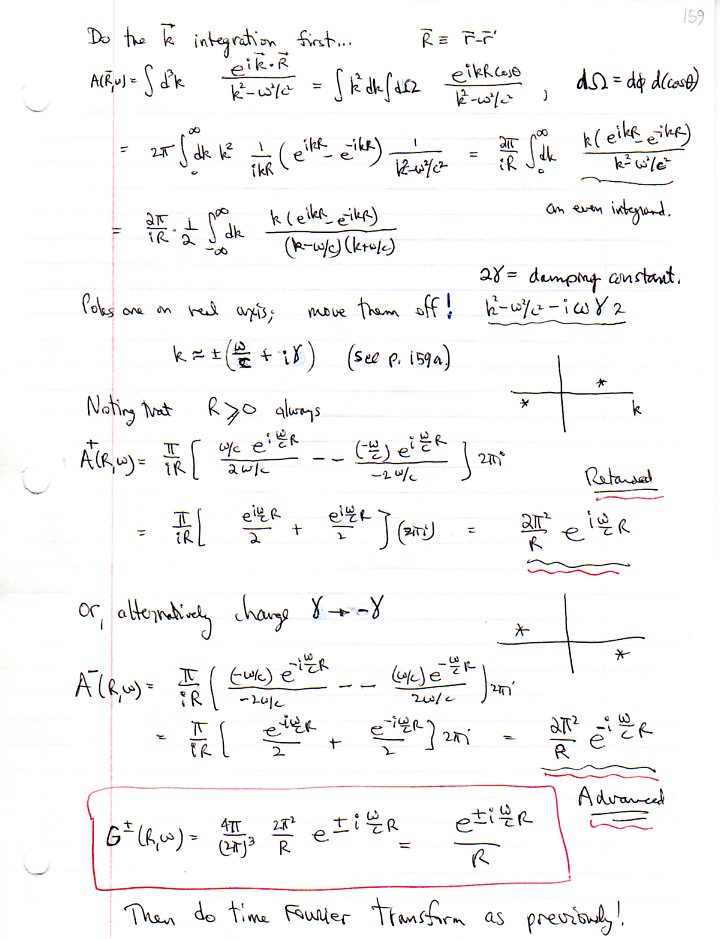 159
Do the k⃗ integration first... R⃗ ≡ r⃗-r⃗'
A(R⃗,ω) = ∫d³k e^{ik⃗·R⃗}/(k²-ω²/c²) = ∫k²dk∫dΩ e^{ikRcosθ}/(k²-ω²/c²) , dΩ = dϕ d(cosθ)
= 2π ∫₀^∞ dk k² 1/(ikR) (e^{ikR} - e^{-ikR}) 1/(k²-ω²/c²) = 2π/(iR) ∫₀^∞ dk k(e^{ikR} - e^{-ikR})/(k²-ω²/c²)
an even integrand.
= 2π/(iR) · 1/2 ∫_{-∞}^{∞} dk k(e^{ikR} - e^{-ikR})/((k-ω/c)(k+ω/c))
2γ = damping constant.
Poles are on real axis; move them off! k²-ω²/c² - iωγ2
k ≈ ±(ω/c + iγ) (see p. 159a)
Noting that R ≥ 0 always k
A⁺(R,ω) = π/(iR) [ ω/c e^{iω/c R}/(2ω/c) - - (-ω/c) e^{iω/c R}/(-2ω/c) ] 2πi
Retarded
= π/(iR) [ e^{iω/c R}/2 + e^{iω/c R}/2 ] (2πi) = 2π²/R e^{iω/c R}
Or, alternatively change γ → -γ
A⁻(R,ω) = π/(iR) [ (-ω/c) e^{-iω/c R}/(-2ω/c) - - (ω/c) e^{-ω/c R}/(2ω/c) ] 2πi
= π/(iR) [ e^{-iω/c R}/2 + e^{-iω/c R}/2 ] 2πi = 2π²/R e^{-iω/c R}
Advanced
G^±(R,ω) = 4π/(2π)³ 2π²/R e^{±iω/c R} = e^{±iω/c R}/R
Then do time Fourier transform as previously!